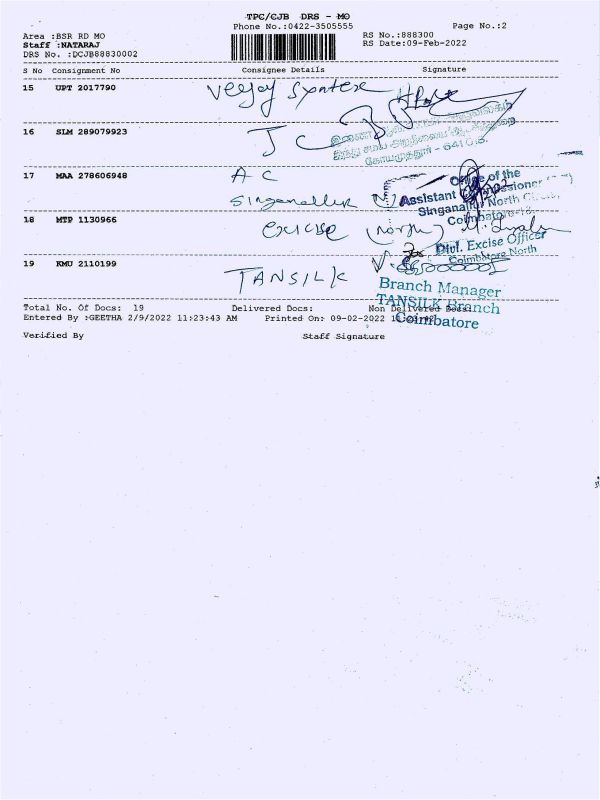 TPC/CJB DRS - MO
Phone No.:0422-3505555
Page No.:2
Area :BSR RD MO
RS No.:888300
Staff :NATARAJ
RS Date:09-Feb-2022
DRS No. :DCJB88830002
S No Consignment No Consignee Details Signature
15 UPT 2017790
16 SLM 289079923 JC
641
17 MAA 278606948 AC
Singanallur
Office of the
Assistant Commissioner
Singanallur North
Coimbatore
18 MTP 1130966 (North)
Divl. Excise Officer
Coimbatore North
19 KMU 2110199 TANSILK
Branch Manager
TANSILK Branch
Coimbatore
Total No. Of Docs: 19 Delivered Docs: Non Delivered Docs:
Entered By :GEETHA 2/9/2022 11:23:43 AM Printed On: 09-02-2022
Verified By Staff Signature